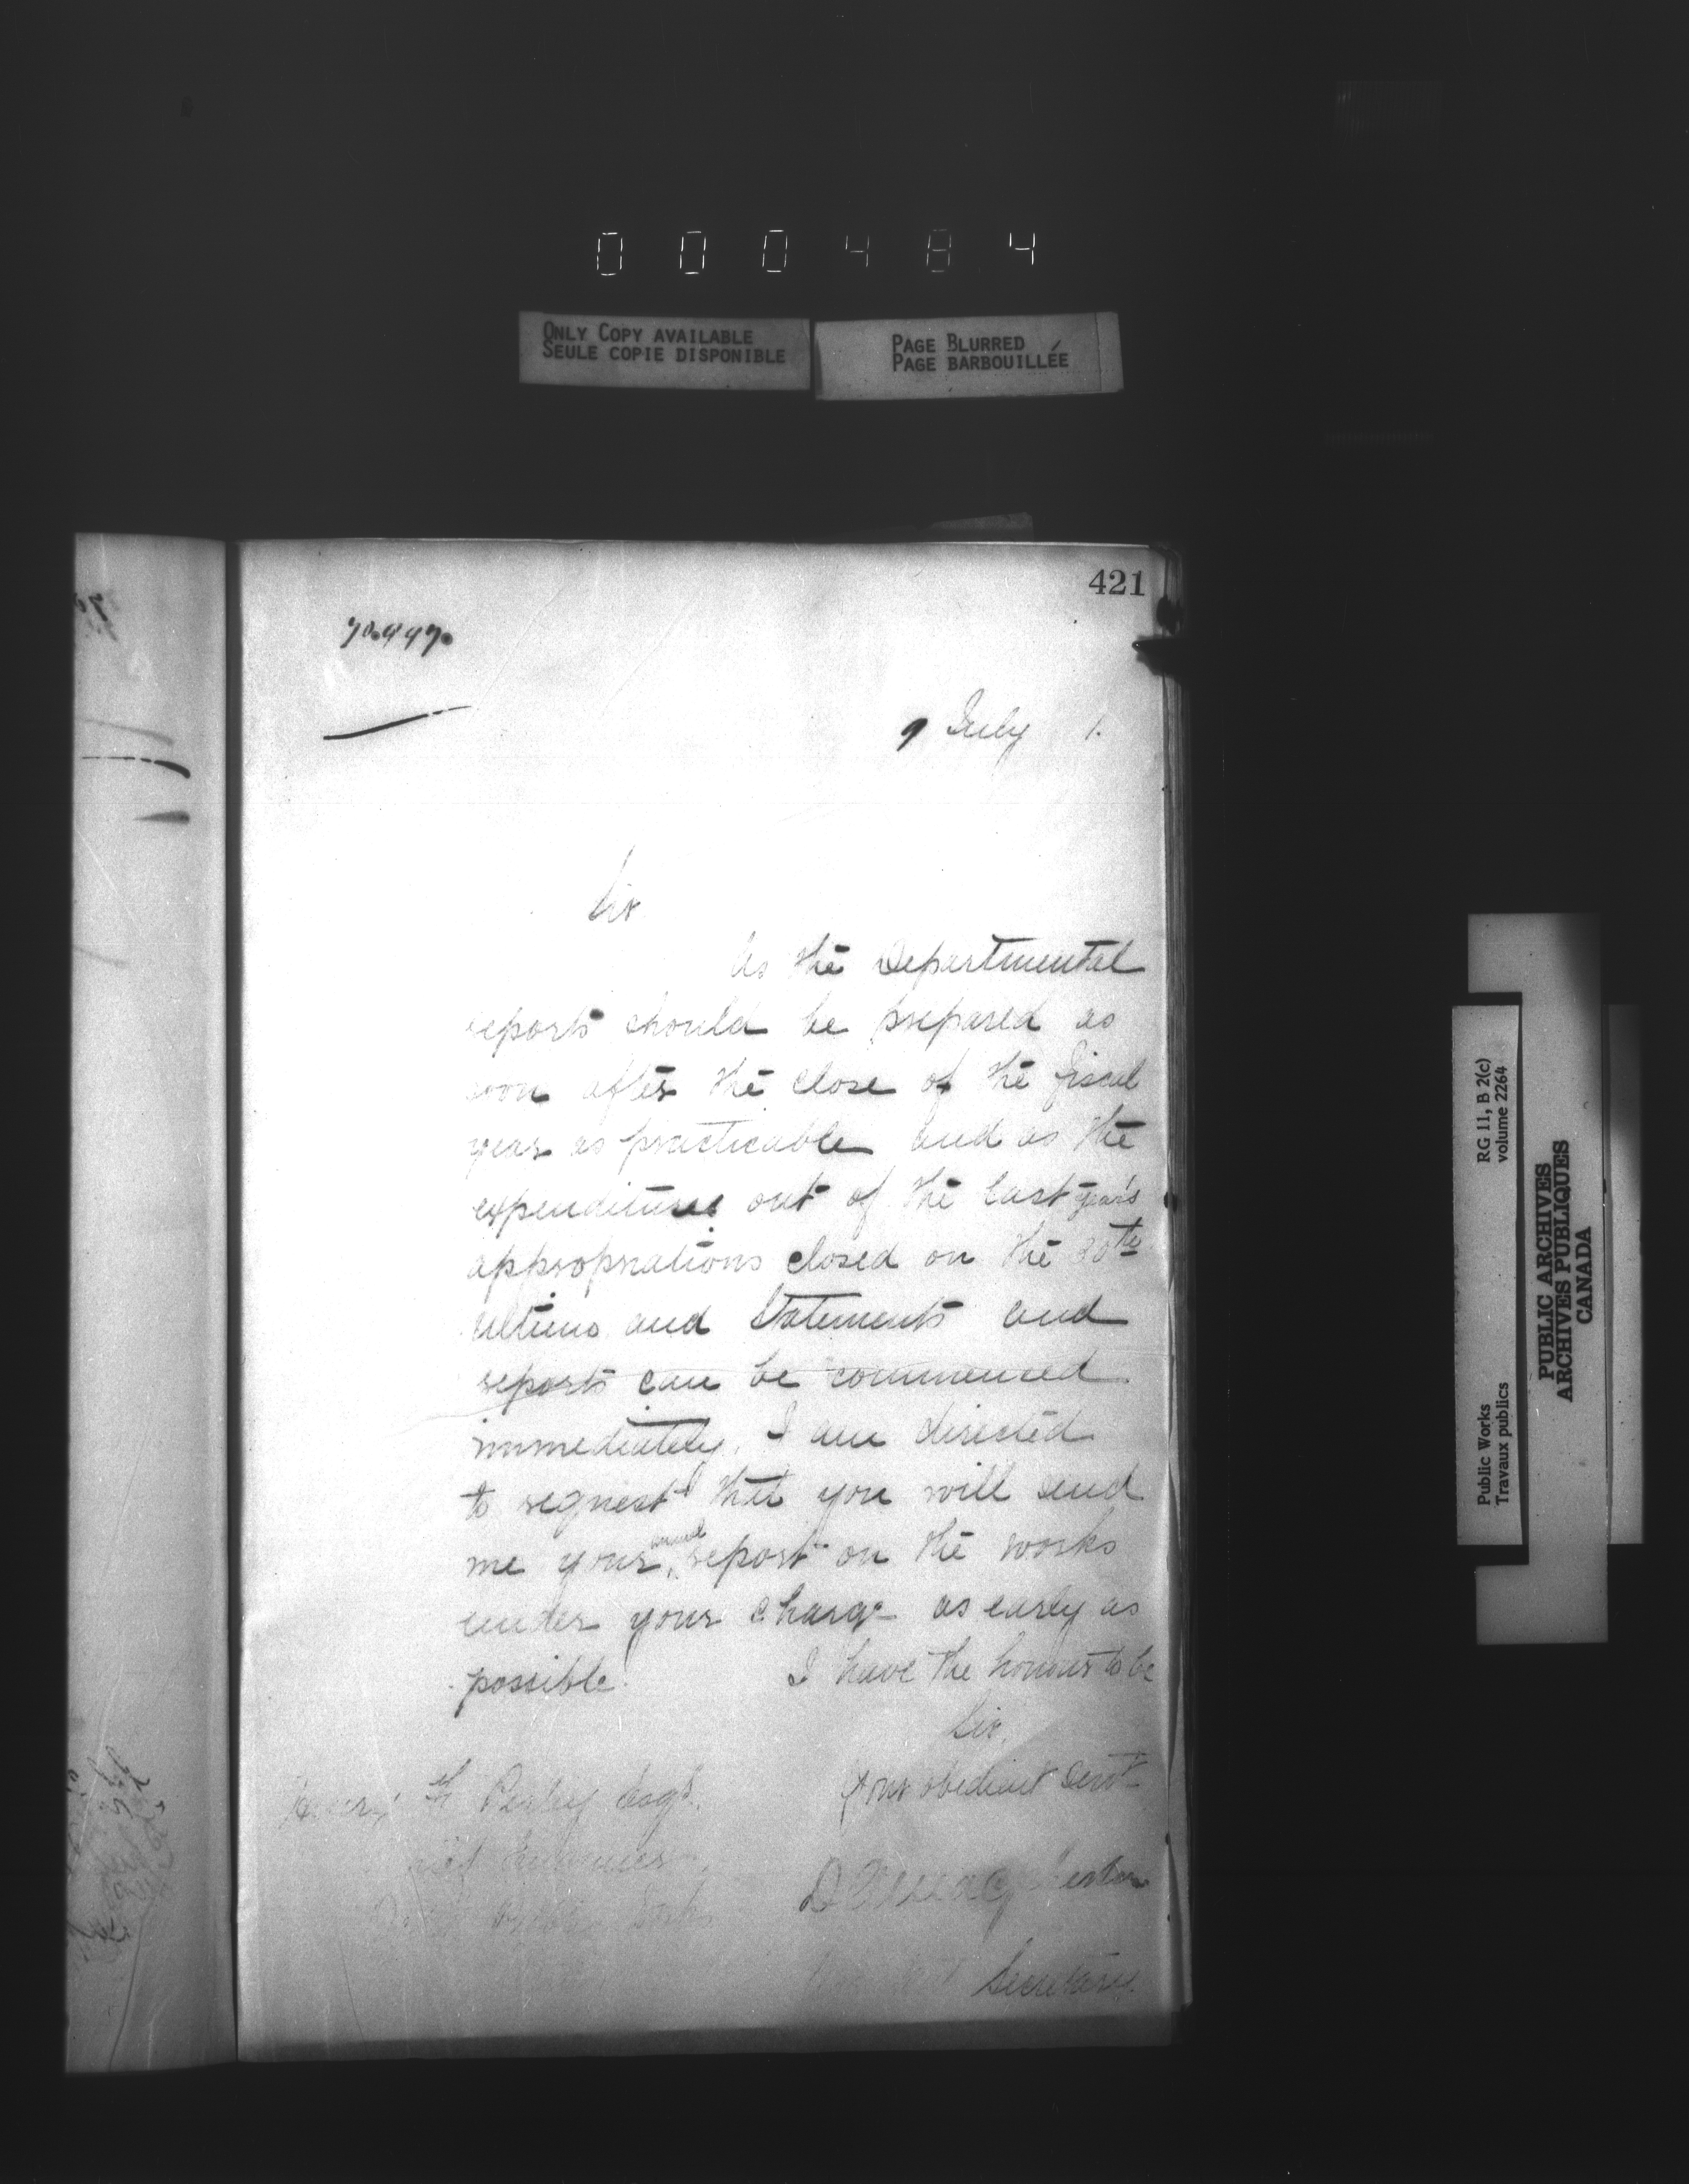 000484
ONLY COPY AVAILABLE
SEULE COPIE DISPONIBLE
PAGE BLURRED
PAGE BARBOUILLÉE
421
9 July 1.
Sir
As the Departmental
reports should be prepared as
soon after the close of the fiscal
year as practicable and as the
expenditures out of the last year's
appropriations closed on the 30th
ultimo and Statements and
reports can be commenced
immediately, I am directed
to request that you will send
me your annual report on the works
under your charge as early as
possible.
I have the honour to be
Sir,
Your obedient Servt
Henry F Perley Esqr.
Secretary.
RG 11, B 2(c)
volume 2264
Public Works
Travaux publics
PUBLIC ARCHIVES
ARCHIVES PUBLIQUES
CANADA